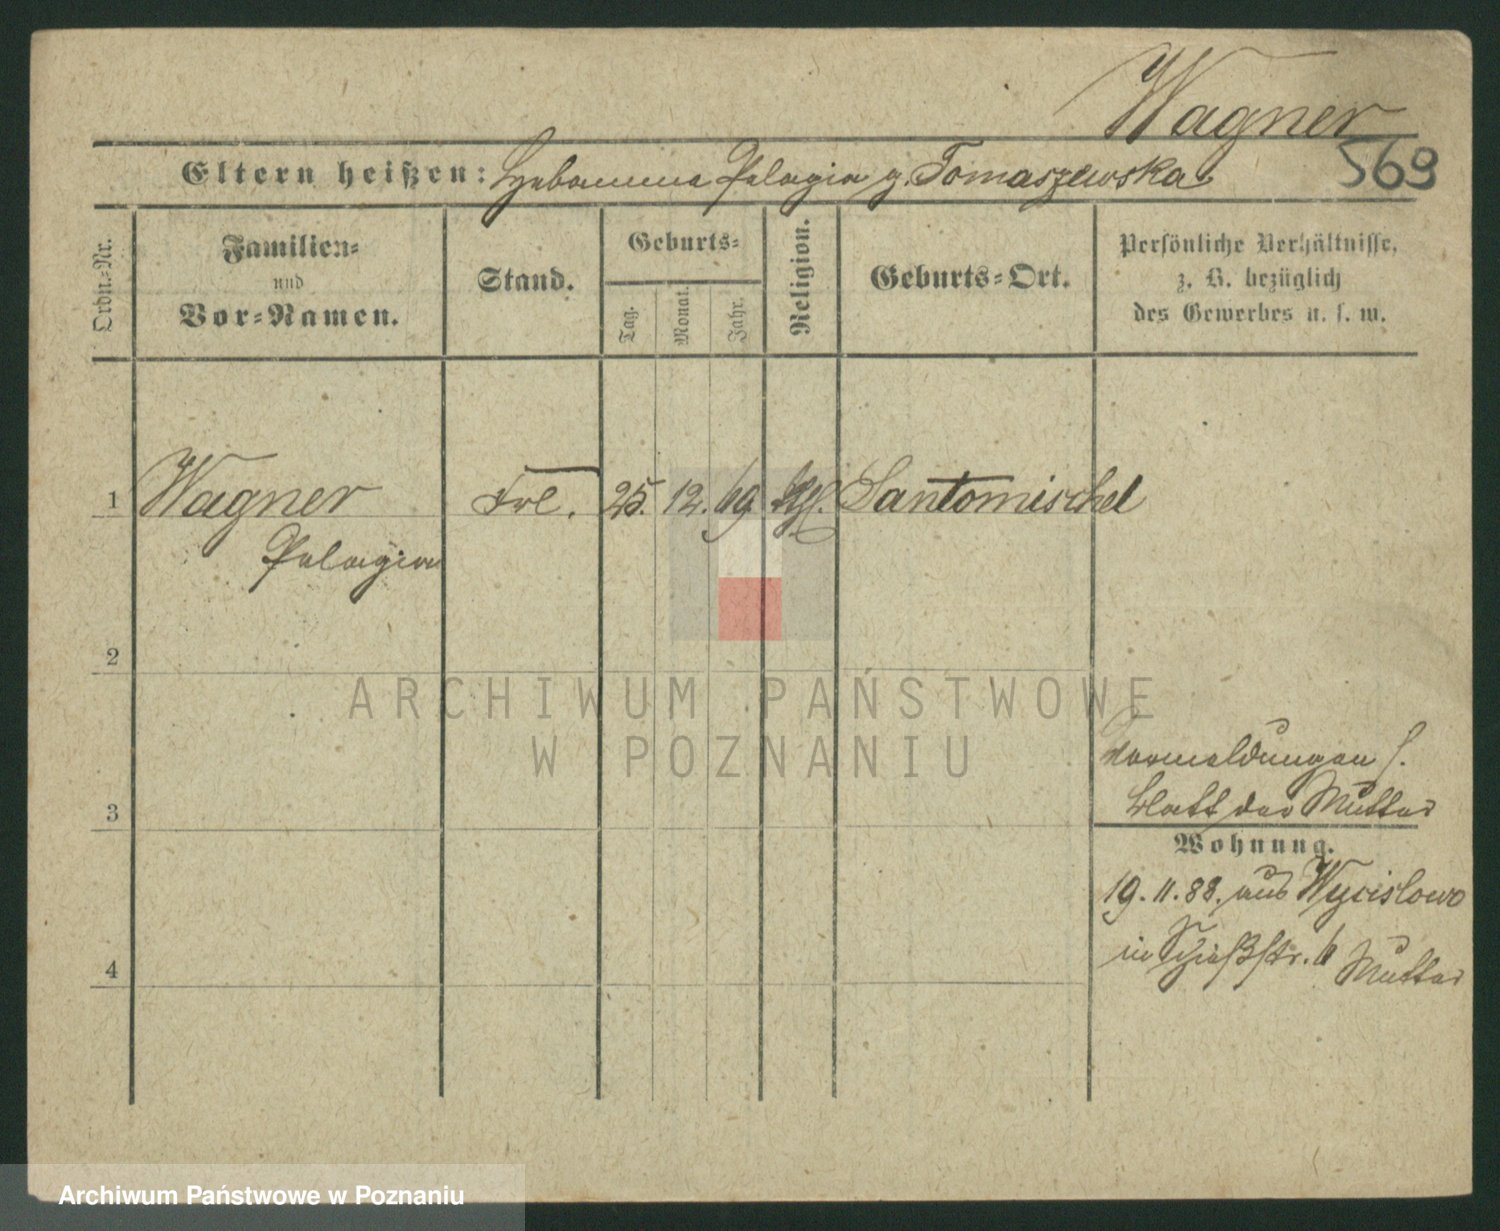 Wagner
569
Eltern heißen: Hebamme Pelagia g. Tomaszewska
Ordn.-Nr.
Familien-
und
Vor-Namen.
Stand.
Geburts-
Tag.
Monat.
Jahr.
Religion.
Geburts-Ort.
Persönliche Verhältnisse,
z. B. bezüglich
des Gewerbes u. s. w.
1 Wagner Frl. 25. 12. 69 kth. Santomischel
Pelagia
2
ARCHIWUM PAŃSTWOWE
W POZNANIU
Vormeldungen s.
Blatt der Mutter
3
Wohnung.
19. 11. 88. aus Wycislowo
in Schießstr. 6 Mutter
4
Archiwum Państwowe w Poznaniu